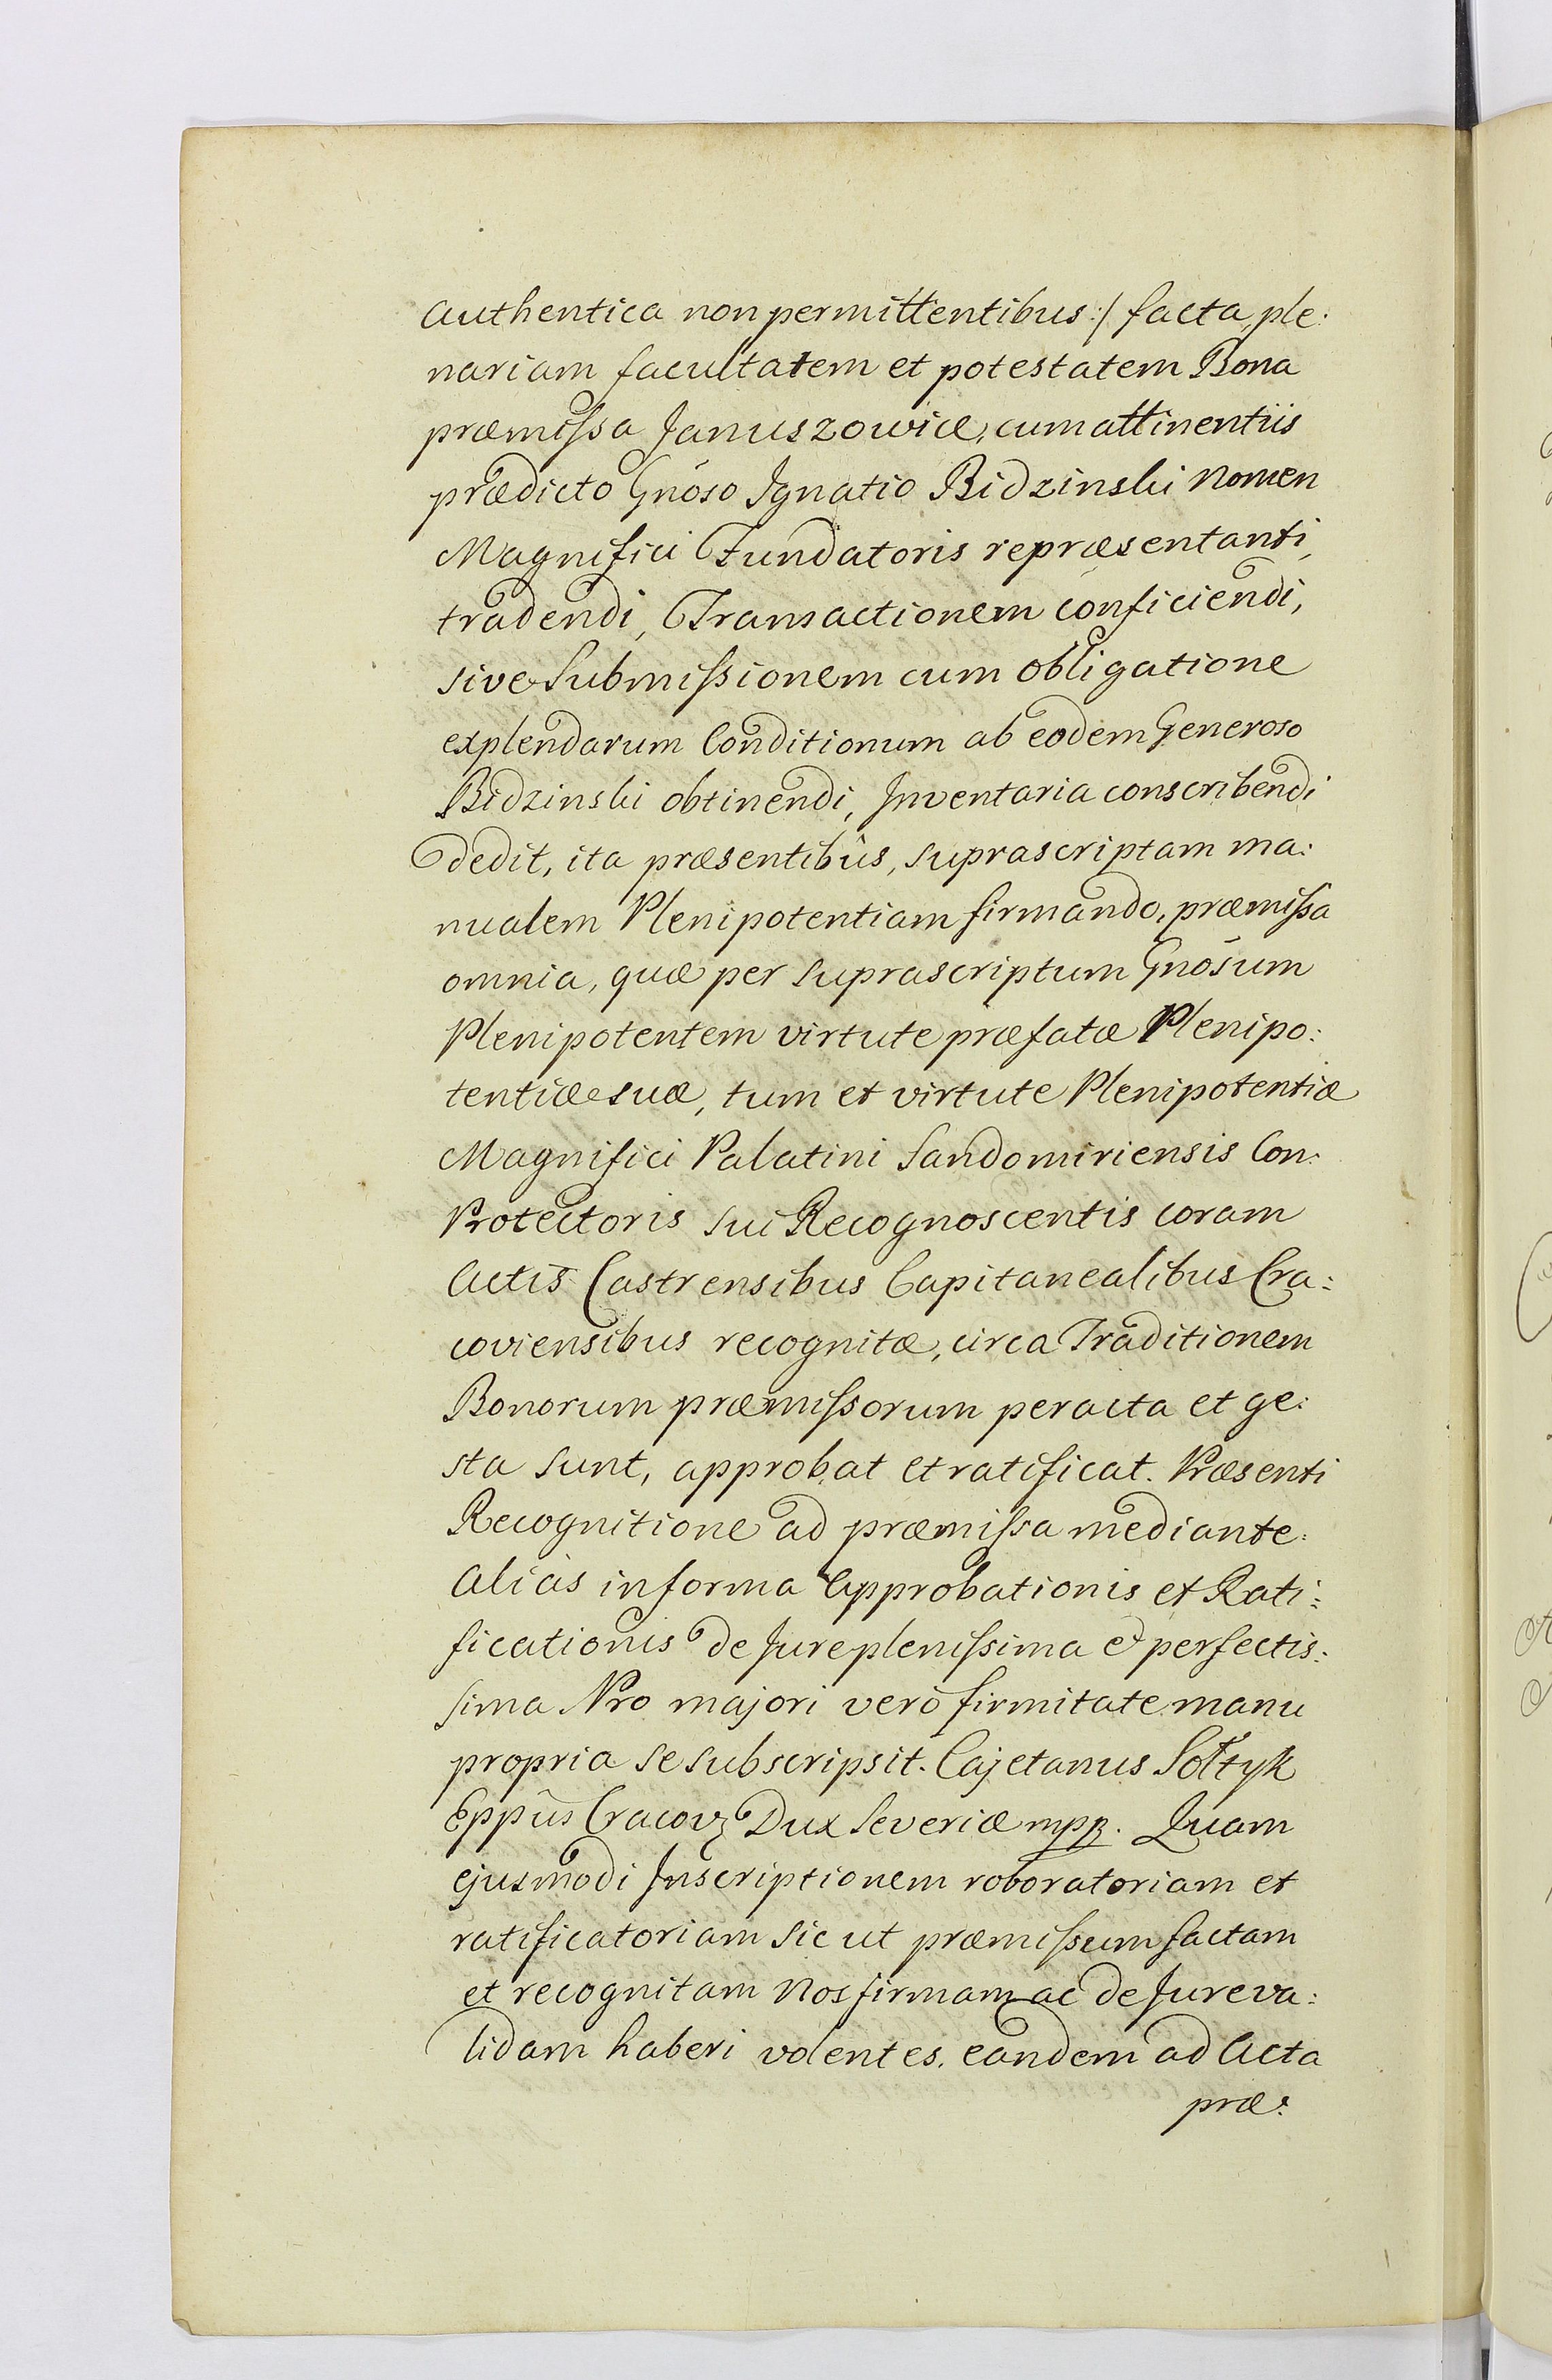 authentica non permittentibus:/ facta, ple:
nariam facultatem et potestatem Bona
præmissa Januszowice, cum attinentiis
prædicto Gnōso Ignatio Bidzinski nomen
Magnifici Fundatoris repræsentanti,
tradendi, Transactionem conficiendi,
sive Submissionem cum obligatione
explendarum Conditionum ab eodem Generoso
Bidzinski obtinendi, Inventaria conscribendi
dedit, ita præsentibûs, suprascriptam ma:
nualem Plenipotentiam firmando, præmissa
omnia, quæ per suprascriptum Gnōsum
Plenipotentem virtute præfatæ Plenipo:
tentiæ suæ, tum et virtute Plenipotentiæ
Magnifici Palatini Sandomiriensis Con:
Protectoris sui Recognoscentis coram
Actis Castrensibus Capitanealibus Cra:
coviensibus recognitæ, circa Traditionem
Bonorum præmissorum peracta et ge:
sta sunt, approbat et ratificat. Præsenti
Recognitione ad præmissa mediante.
Aliàs in forma Approbationis et Rati:
ficationis de Jure plenissima et perfectis:
sima Pro majori verò firmitate manu
propria se subscripsit. Cajetanus Sołtyk
Eppūs Cracov: Dux Severiæ mpp. Quam
ejusmodi Inscriptionem roboratoriam et
ratificatoriam sic ut præmissum factam
et recognitam nos firmam ac de Jure va:
lidam haberi volentes. eandem ad Acta
præ: